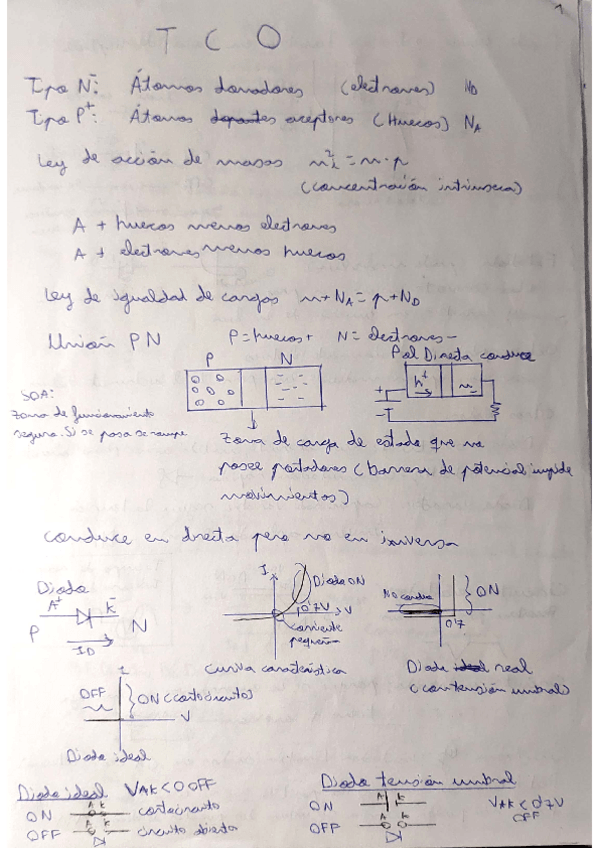 1
T C O
Tipo N⁻: Átomos donadores (electrones) ND
Tipo P⁺: Átomos aceptores (Huecos) NA
Ley de acción de masas ni² = n·p
(concentración intrínseca)
A + huecos menos electrones
A + electrones menos huecos
Ley de igualdad de cargas n+NA = p+ND
Unión PN P=huecos+ N=electrones-
P N
Pol Directa conduce
h⁺ n-
+
-
SOA:
Zona de funcionamiento
segura. Si se pasa se rompe
Zona de carga de estado que no
posee portadores (barrera de potencial impide
movimientos)
conduce en directa pero no en inversa
Diodo
A⁺ K⁻
P N
ID
I
Diodo ON
0'7V V
corriente
pequeña
curva característica
No conduce
ON
0'7
Diodo real
(con tensión umbral)
I
OFF
ON (cortocircuito)
V
Diodo ideal
Diodo ideal VAK<0 OFF
ON A K cortocircuito
OFF A K circuito abierto
Diodo tensión umbral
ON A K
OFF A K
VAK<0'7V
OFF